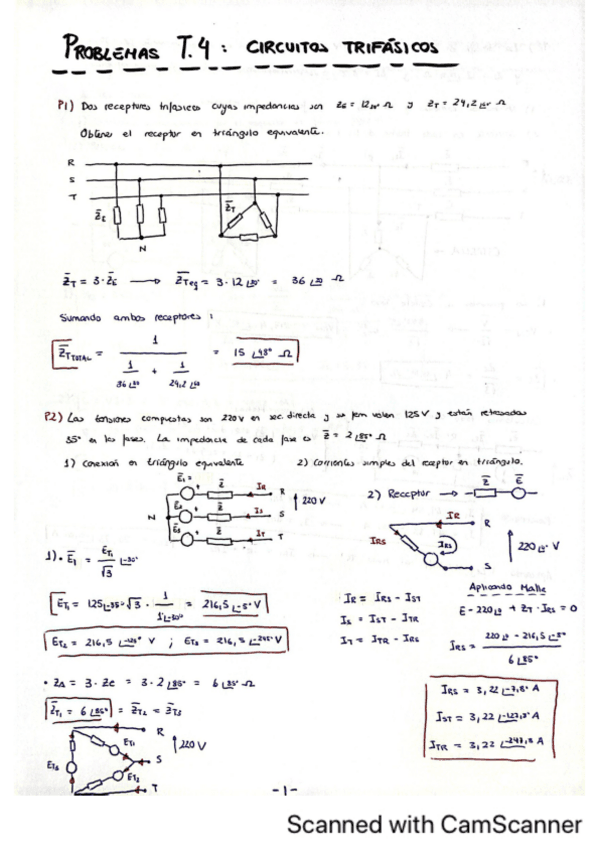 PROBLEMAS T.4: CIRCUITOS TRIFÁSICOS
P1) Dos receptores trifásicos cuyas impedancias son Z̄E = 12∠30° Ω y Z̄T = 24,2∠60° Ω
Obtener el receptor en triángulo equivalente.
R
S
T
Z̄E
Z̄T
N
Z̄T = 3·Z̄E → Z̄Teq = 3·12∠30° = 36∠30° Ω
Sumando ambos receptores:
Z̄T TOTAL = 1 / (1/36∠30 + 1/24,2∠60) = 15∠48° Ω
P2) Las tensiones compuestas son 220V en sec. directa y su fem valen 125V y están retrasadas
35° en las fases. La impedancia de cada fase es Z̄ = 2∠85° Ω
1) Conexión en triángulo equivalente
2) Corrientes simples del receptor en triángulo.
Ē1 Z̄ IR R
Ē2 Z̄ IS S
Ē3 Z̄ IT T
N
220V
2) Receptor → Z̄ Ē
IR R
IRS
IRS
S
220∠0° V
1)· Ē1 = ĒT1/√3 ∠-30°
ĒT1 = 125∠-35°·√3 · 1/1∠-30° = 216,5∠-5° V
ĒT2 = 216,5∠-125° V ; ĒT3 = 216,5∠-245° V
· ZΔ = 3·Ze = 3·2∠85° = 6∠85° Ω
Z̄T1 = 6∠85° = Z̄T2 = Z̄T3
R
S
T
ET1
ET2
ET3
220V
IR = IRS - IST
IS = IST - ITR
IT = ITR - IRS
Aplicando Malla
E - 220∠0 + ZT·IRS = 0
IRS = (220∠0 - 216,5∠-5°) / 6∠85°
IRS = 3,22∠-7,8° A
IST = 3,22∠-127,8° A
ITR = 3,22∠-247,8 A
-1-
Scanned with CamScanner